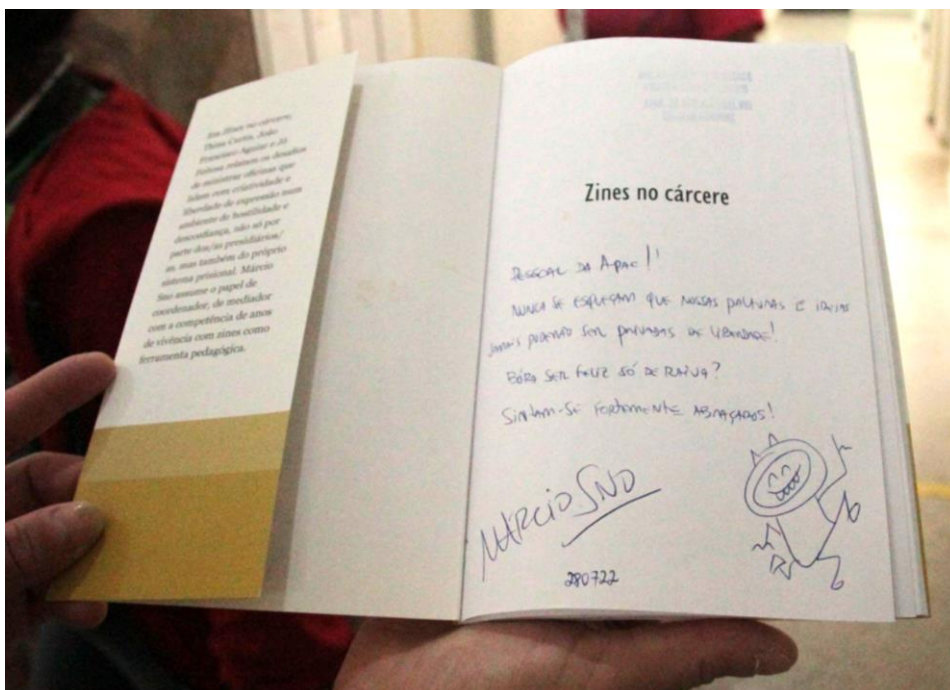 Em Zines no cárcere,
Thina Curtis, João
Francisco Aguiar e Jô
Feitosa relatam os desafios
de ministrar oficinas que
lidam com criatividade e
liberdade de expressão num
ambiente de hostilidade e
desconfiança, não só por
parte dos/as presidiários/
as, mas também do próprio
sistema prisional. Márcio
Sno assume o papel de
coordenador, de mediador
com a competência de anos
de vivência com zines como
ferramenta pedagógica.
Zines no cárcere
PESSOAL DA APAC!!
NUNCA SE ESQUEÇAM QUE NOSSAS PALAVRAS E IDEIAS
JAMAIS PODERÃO SER PRIVADAS DE LIBERDADE!
BÓRA SER FELIZ SÓ DE RAIVA?
SINTAM-SE FORTEMENTE ABRAÇADOS!
MÁRCIO SNO
280722